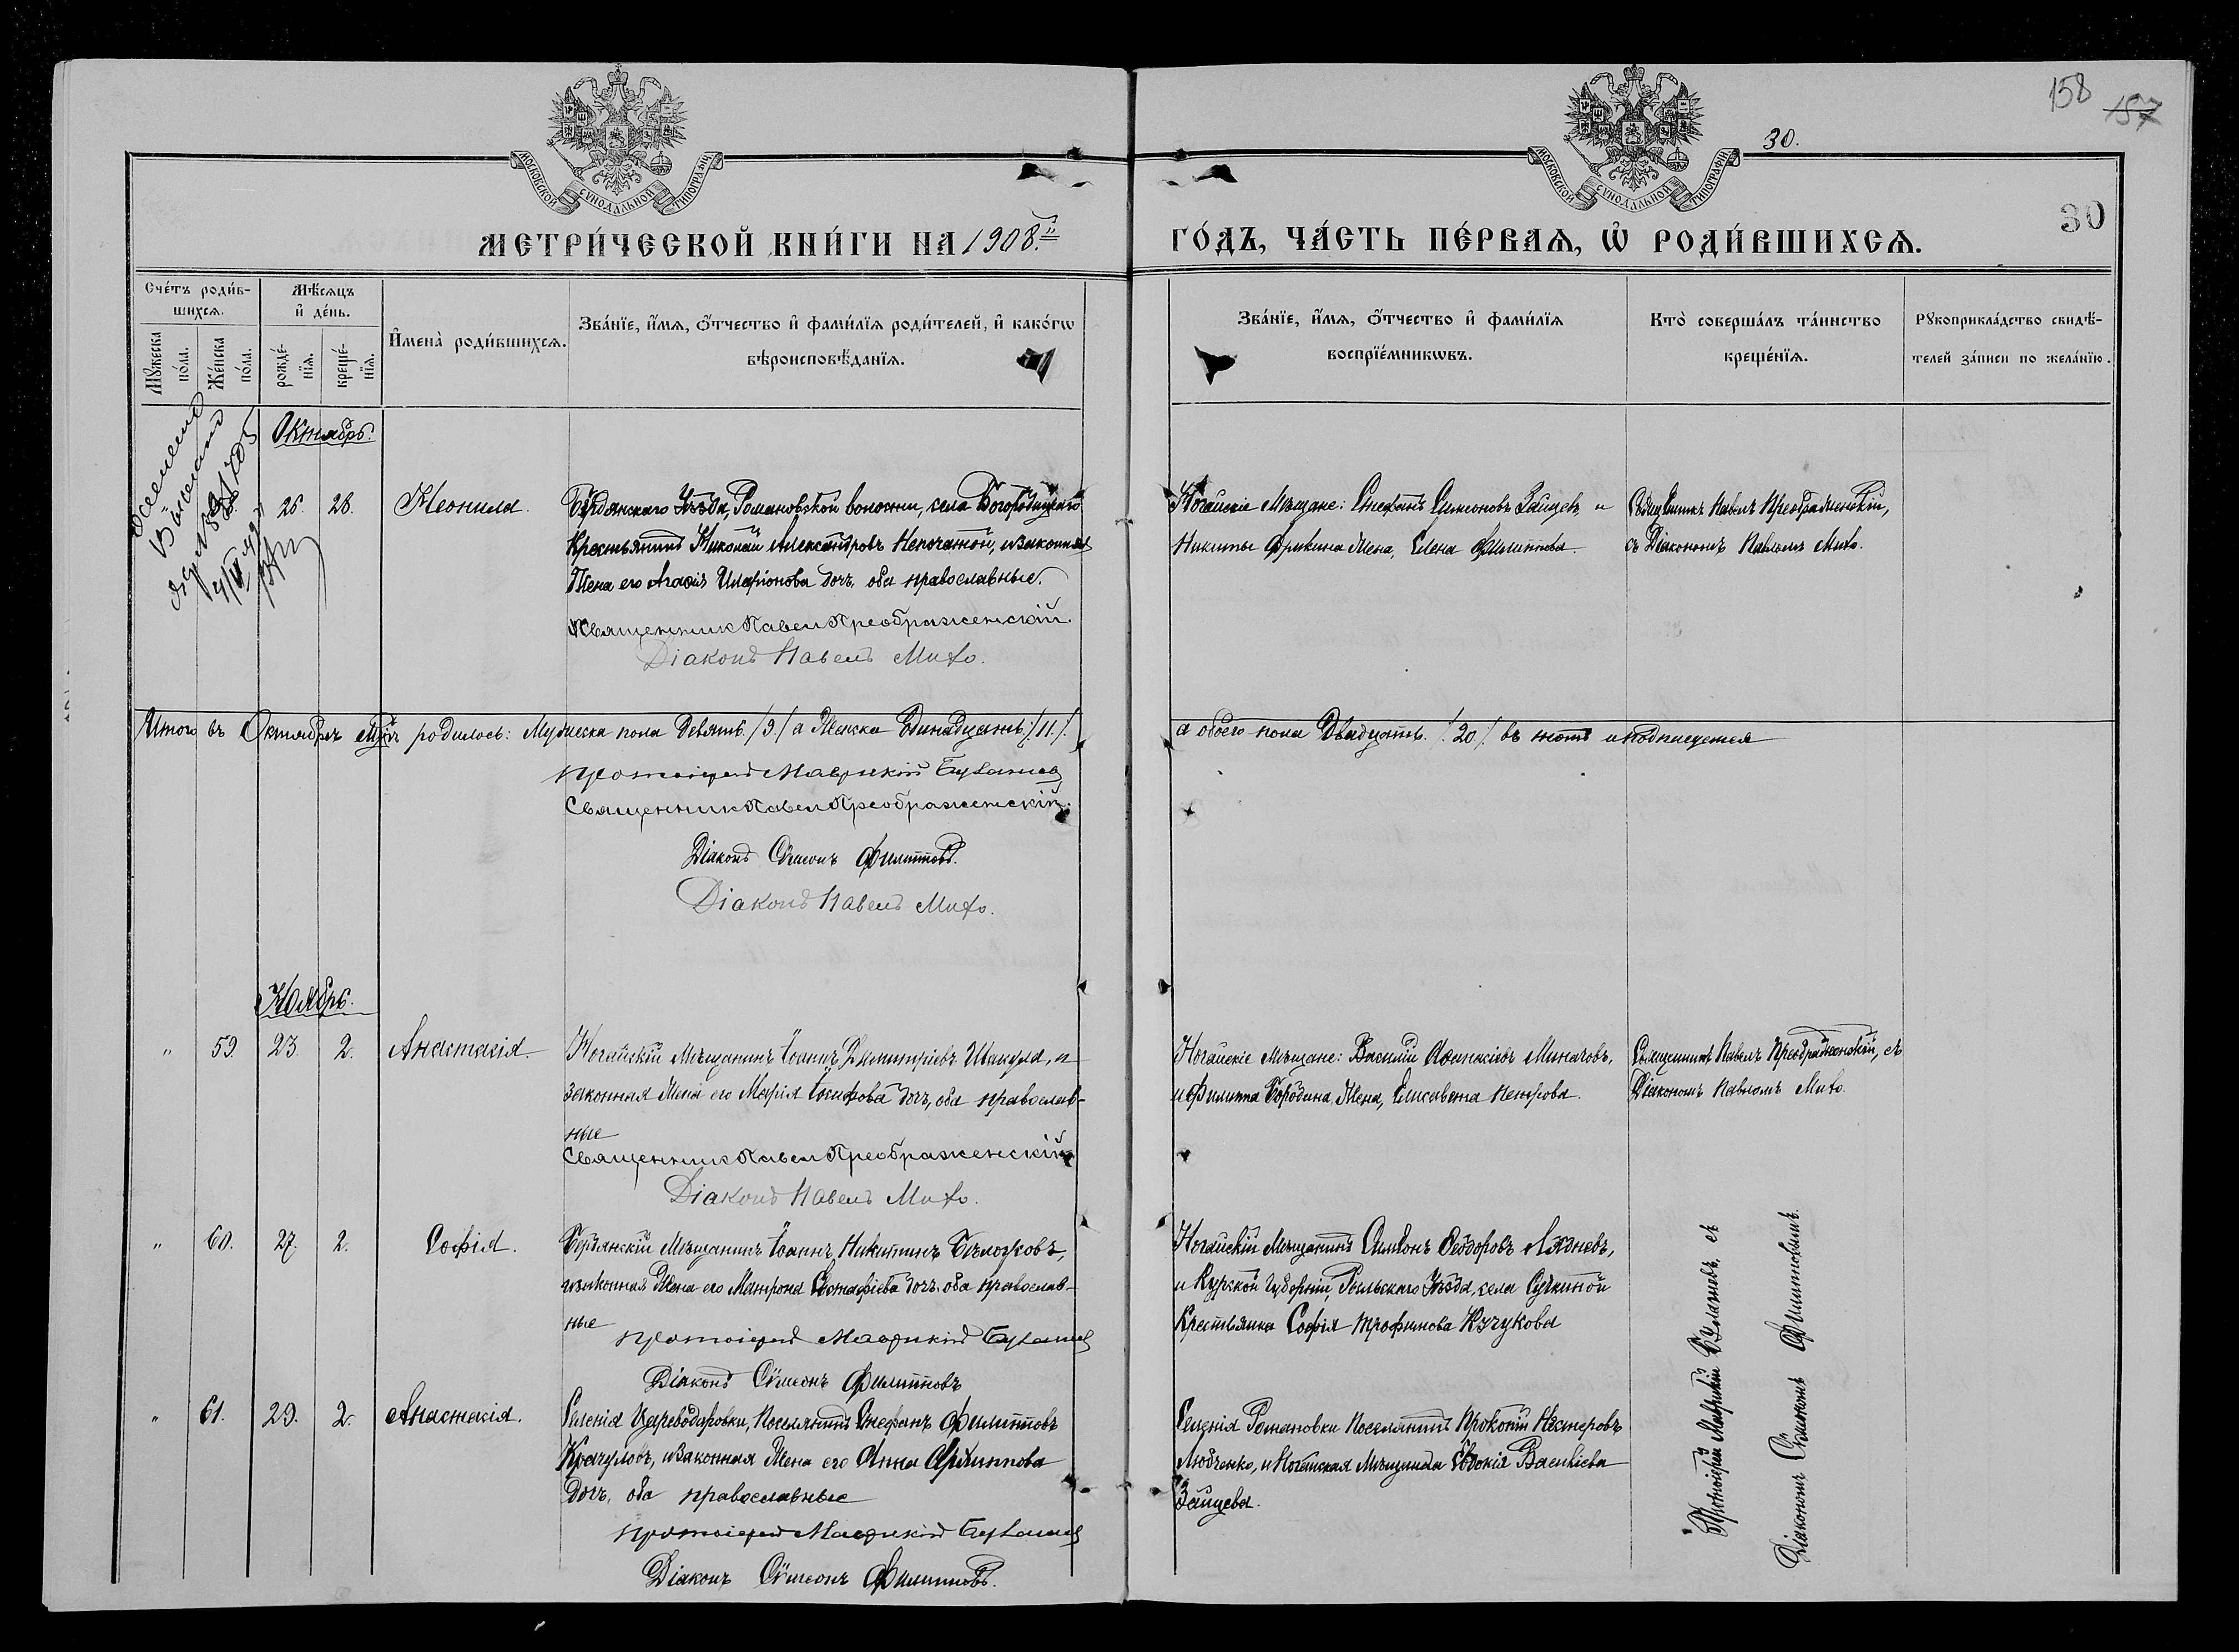 158 157
30.
30
МОСКОВСКОЙ СѴНОДАЛЬНОЙ ТИПОГРАФІИ
МОСКОВСКОЙ СѴНОДАЛЬНОЙ ТИПОГРАФІИ
МЕТРИ́ЧЕСКОЙ КНИ́ГИ НА 1908й ГО́ДЪ, ЧА́СТЬ ПЕ́РВАѦ, Ѡ РОДИ́ВШИХСѦ.
Сче́тъ роди́в-
шихсѧ.
Мꙋжеска по́ла.
Же́нска по́ла.
Мѣ́сѧцъ
и҆ де́нь.
рожде́-
нїѧ.
креще́-
нїѧ.
И҆мена̀ роди́вшихсѧ.
Зва́нїе, и҆́мѧ, ѻ҆́тчество и҆ фами́лїѧ роди́телей, и҆ како́гѡ
вѣроисповѣ́данїѧ.
Зва́нїе, и҆́мѧ, ѻ҆́тчество и҆ фами́лїѧ
воспрїе́мникѡвъ.
Кто̀ соверша́лъ та́инство
креще́нїѧ.
Рꙋкоприкла́дство свидѣ́-
телей за́писи по жела́нїю.
Октябрь.
26. 28. Неонила.
Бердянскаго Уѣзда, Романовской волости, села Богородицкаго
Крестьянинъ Николай Александровъ Непочатой, и законная
Жена его Агафія Иларіонова дочь, оба православные.
Священник Павел Преображенскій.
Діаконъ Павелъ Михо.
Ногайскіе Мѣщане: Стефанъ Симеоновъ Зайцевъ, и
Никиты Жена, Елена Филиппова.
Священникъ Павелъ Преображенскій,
съ Діакономъ Павломъ Михо.
Итого въ Октябрѣ мцѣ родилось: Мужеска пола Девять /9/ а Женска Одинадцать /11/.
а обоего пола Двадцать /20/ въ томъ и подписуемся
Протоіерей Маврикій
Священник Павел Преображенскій.
Діаконъ Симеонъ Филипповъ.
Діаконъ Павелъ Михо.
Ноябрь.
" 59. 23. 2. Анастасія.
Ногайскій Мѣщанинъ Іоаннъ Димитріевъ Шакула, и
законная Жена его Марія Іосифова дочь, оба православ-
ные
Священник Павел Преображенскій
Діаконъ Павелъ Михо.
Ногайскіе Мѣщане: Василій Афанасіевъ Миначовъ,
и Филиппа Бородина Жена, Елисавета Петрова.
Священникъ Павелъ Преображенскій, съ
Діакономъ Павломъ Михо.
" 60. 27. 2. Софія.
Бердянскій Мѣщанинъ Іоаннъ Никитинъ Бѣлочковъ,
и законная Жена его Матрона Евстафіева дочь, оба православ-
ные
Протоіерей Маврикій
Діаконъ Симеонъ Филипповъ
Ногайскій Мѣщанинъ Симеонъ Феодоровъ
и Курской Губерніи, Рыльскаго Уѣзда, села
Крестьянка Софія Трофимова
Протоіерей Маврикій съ
Діакономъ Симеономъ Филипповымъ.
" 61. 29. 2. Анастасія.
Селенія Цареводаровки, Поселянинъ Стефанъ Филипповъ
Крачуловъ, и законная Жена его Анна Филиппова
дочь, оба православные
Протоіерей Маврикій
Діаконъ Симеонъ Филипповъ.
Селенія Романовки Поселянинъ Прокопій Нестеровъ
Любченко, и Ногайская Мѣщанка Евдокія Васильева
Зайцева.